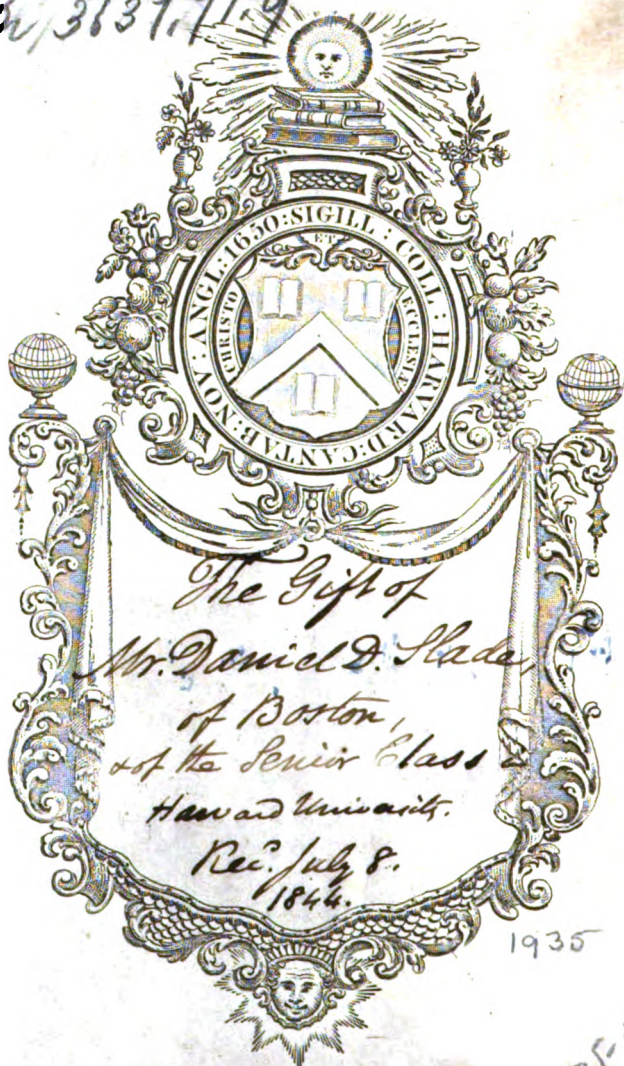 3637.71.9
SIGILL : COLL : HARVARD : CANTAB : NOV : ANGL : 1650 :
CHRISTO ET ECCLESIÆ
The Gift of
Mr. Daniel D. Slade,
of Boston,
& of the Senior Class
Harvard University.
Rec.d July 8.
1844.
1935